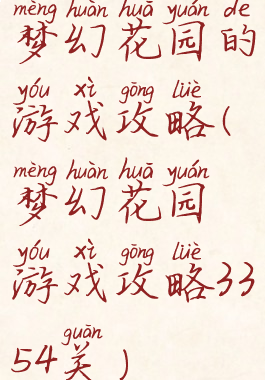 mèng huàn huā yuán de
梦幻花园的
yóu xì gōng lüè
游戏攻略(
mèng huàn huā yuán
梦幻花园
yóu xì gōng lüè
游戏攻略33
guān
54关)